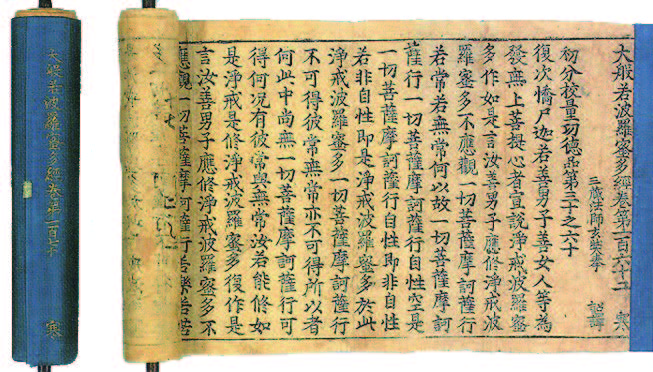 大般若波羅蜜多經卷第一百六十二 寒
三藏法師玄奘奉 詔譯
初分挍量功德品第三十之六十
復次憍尸迦若善男子善女人等為
發無上菩提心者宣說淨戒波羅蜜
多作如是言汝善男子應修淨戒波
羅蜜多不應觀一切菩薩摩訶薩行
若常若無常何以故一切菩薩摩訶
薩行一切菩薩摩訶薩行自性空是
一切菩薩摩訶薩行自性即非自性
若非自性即是淨戒波羅蜜多於此
淨戒波羅蜜多一切菩薩摩訶薩行
不可得彼常無常亦不可得所以者
何此中尚無一切菩薩摩訶薩行可
得何況有彼常與無常汝若能修如
是淨戒是修淨戒波羅蜜多復作是
言汝善男子應修淨戒波羅蜜多不
應觀一切菩薩摩訶薩行若樂若苦
大般若波羅蜜多經卷第一百七十 寒